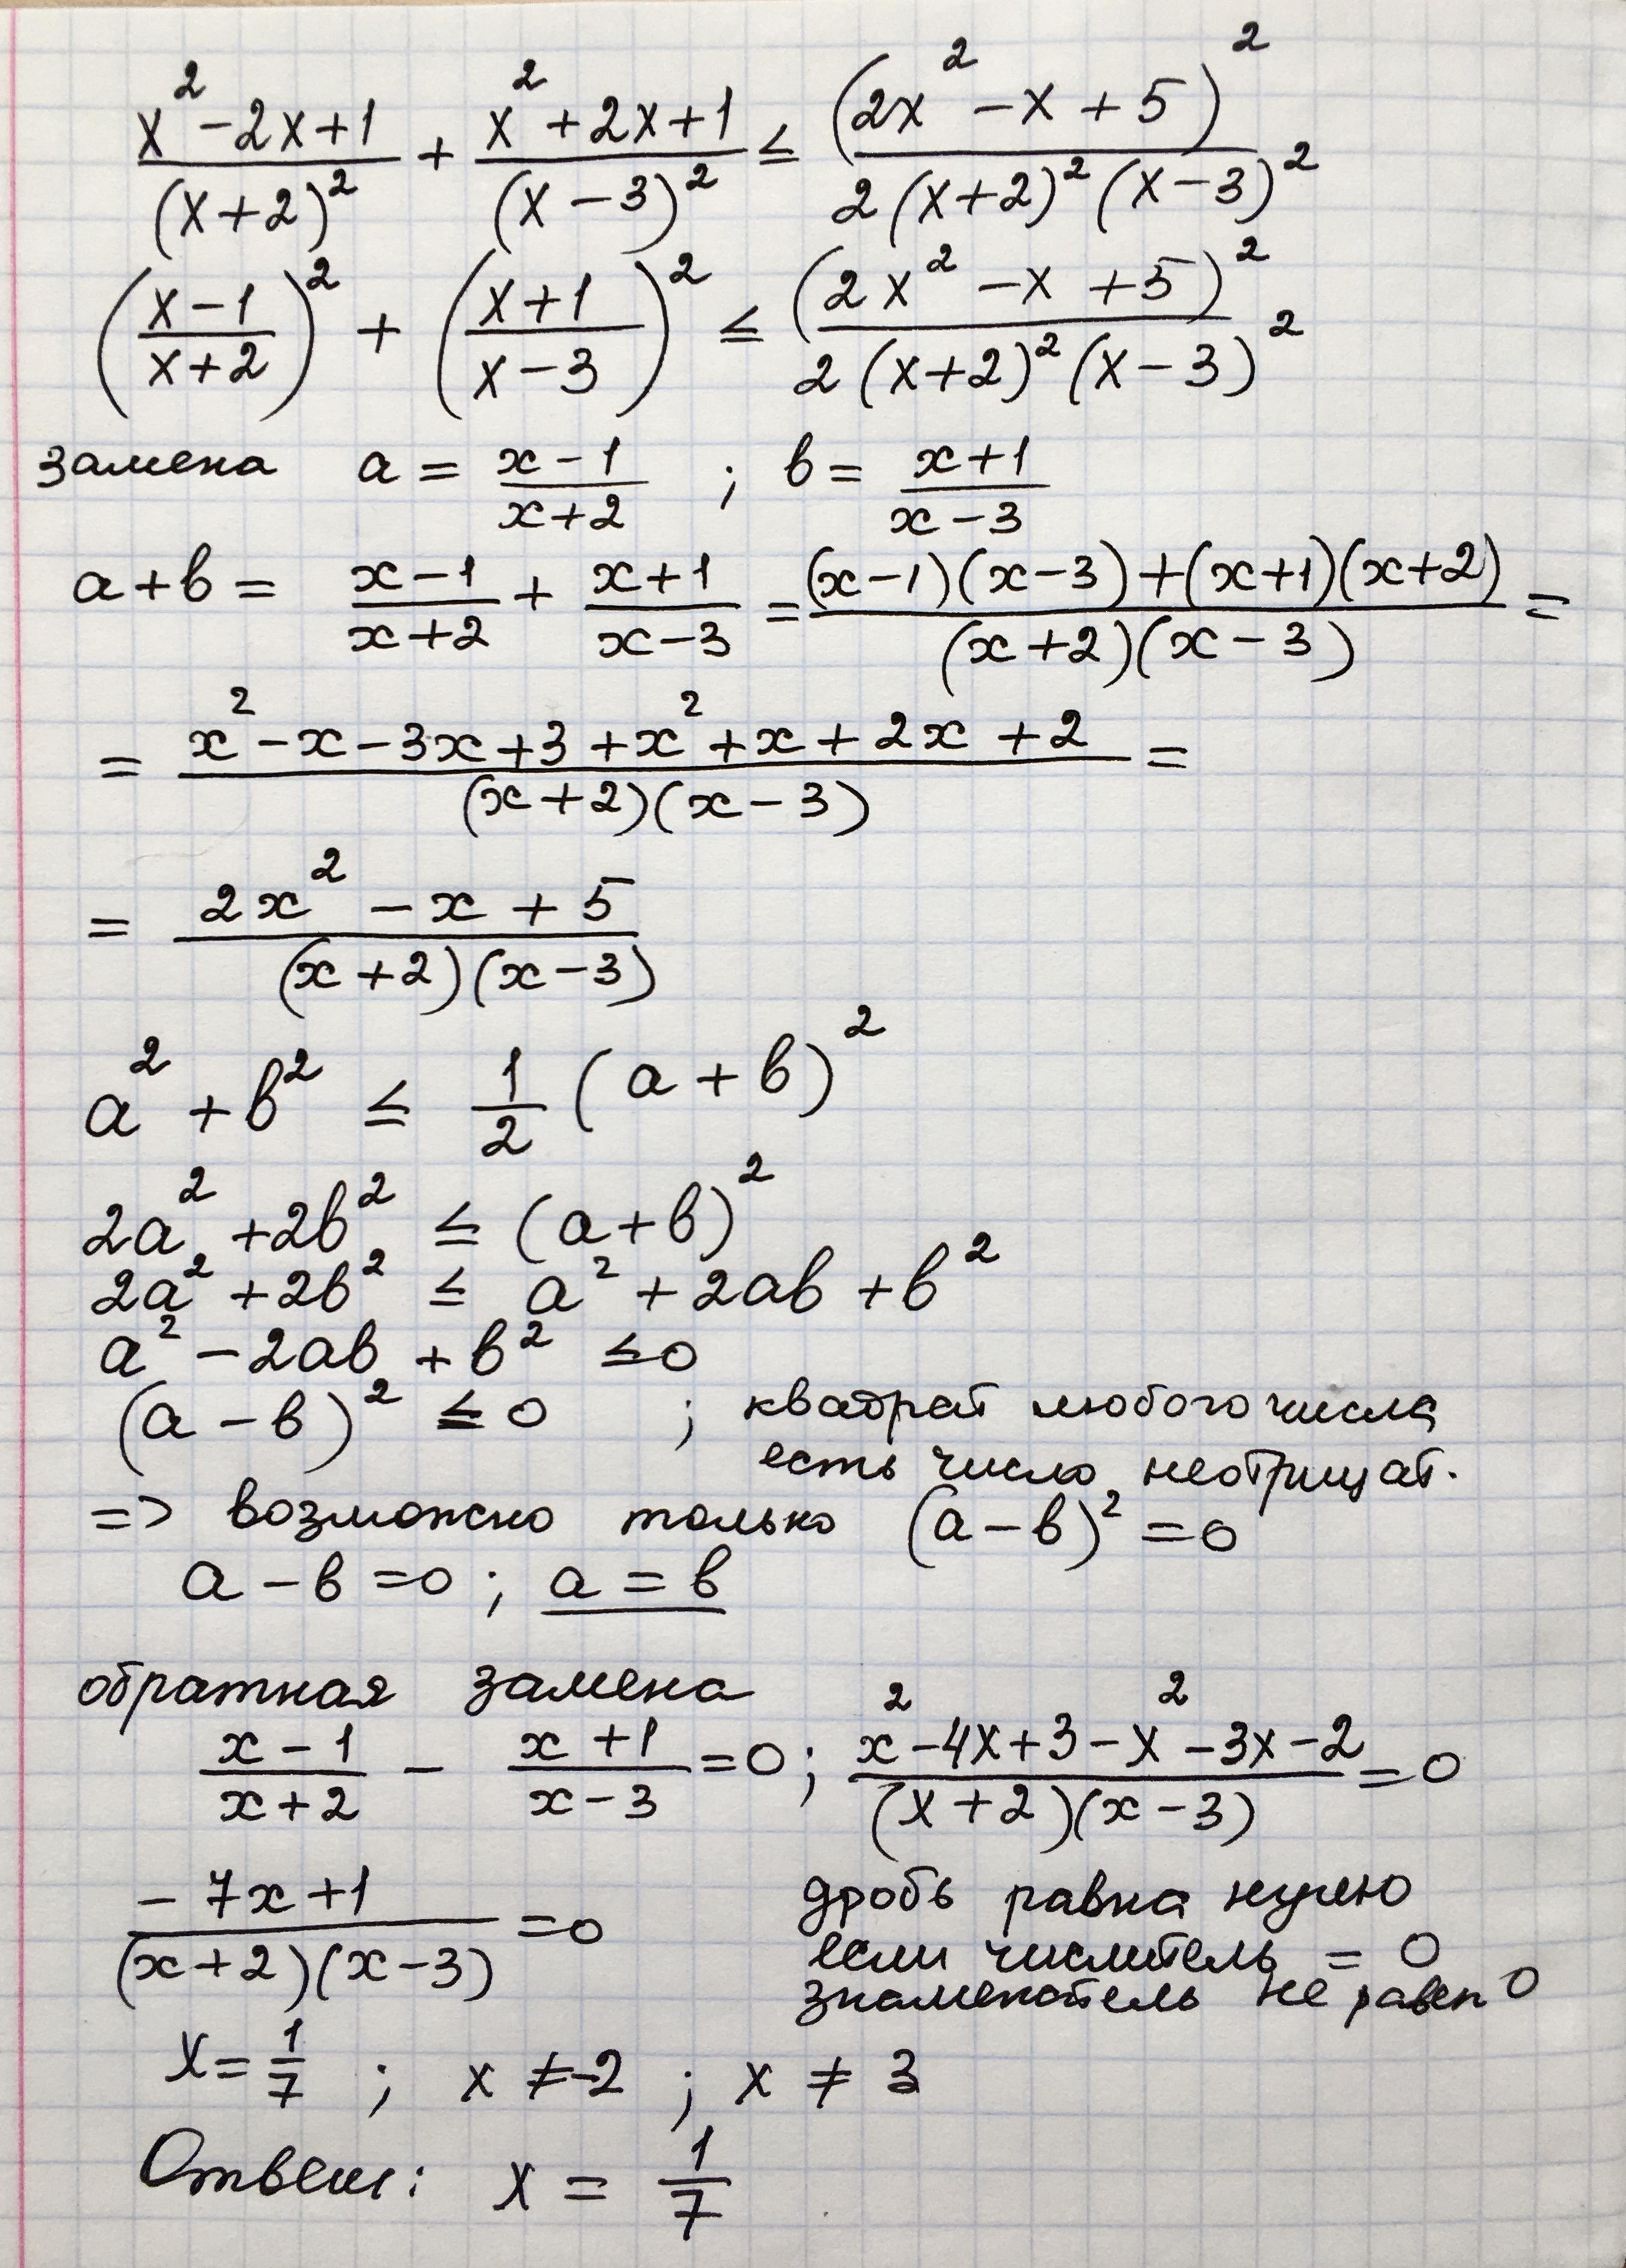 (x² - 2x + 1)/(x+2)² + (x² + 2x + 1)/(x - 3)² ≤ (2x² - x + 5)²/(2(x+2)²(x-3)²)
((x-1)/(x+2))² + ((x+1)/(x-3))² ≤ (2x² - x + 5)²/(2(x+2)²(x-3)²)
замена a = (x-1)/(x+2) ; b = (x+1)/(x-3)
a+b = (x-1)/(x+2) + (x+1)/(x-3) = ((x-1)(x-3)+(x+1)(x+2))/((x+2)(x-3)) =
= (x² - x - 3x + 3 + x² + x + 2x + 2)/((x+2)(x-3)) =
= (2x² - x + 5)/((x+2)(x-3))
a² + b² ≤ 1/2 (a + b)²
2a² + 2b² ≤ (a+b)²
2a² + 2b² ≤ a² + 2ab + b²
a² - 2ab + b² ≤ 0
(a - b)² ≤ 0 ; квадрат любого числа
есть число неотрицат.
=> возможно только (a - b)² = 0
a - b = 0 ; a = b
обратная замена
(x-1)/(x+2) - (x+1)/(x-3) = 0 ; (x² - 4x + 3 - x² - 3x - 2)/((x+2)(x-3)) = 0
(-7x+1)/((x+2)(x-3)) = 0 дробь равна нулю
если числитель = 0
знаменатель не равен 0
x = 1/7 ; x ≠ -2 ; x ≠ 3
Ответ: x = 1/7